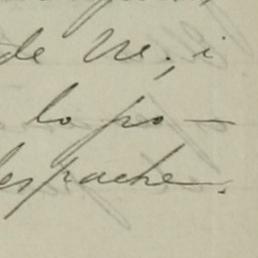 de Ue; i
lo po-
despache.